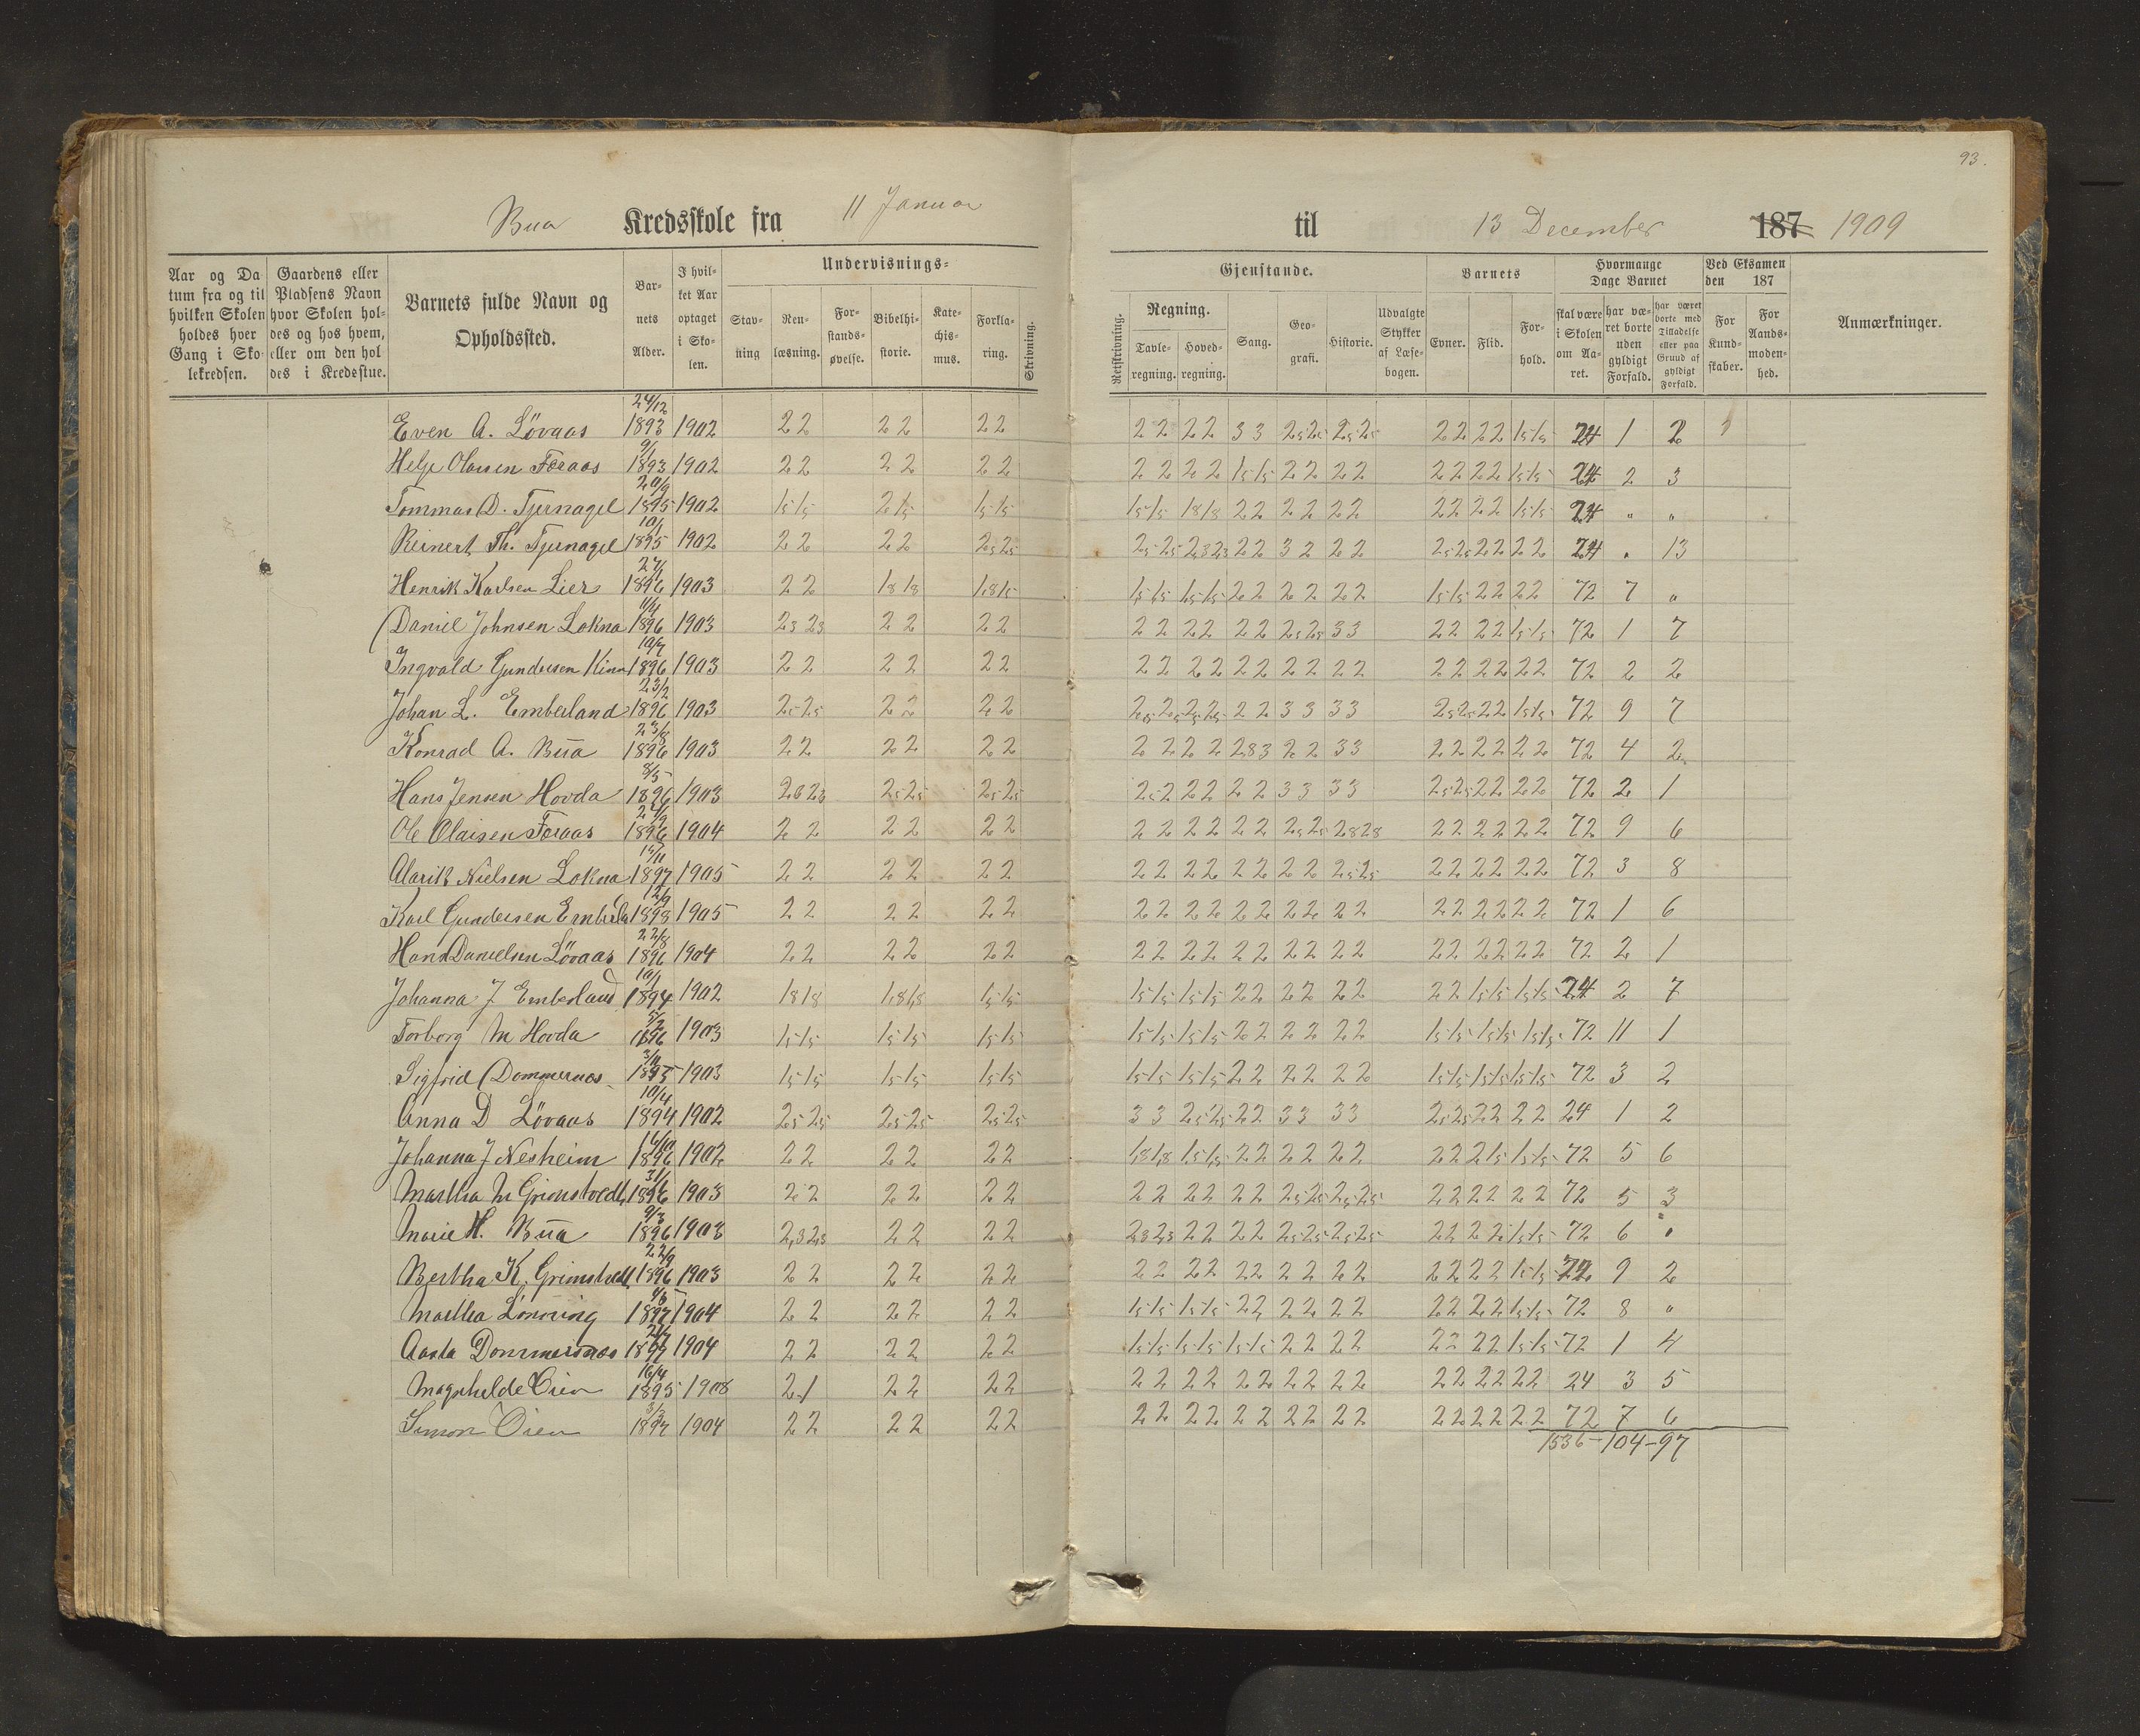 93.
Bua Kredsskole fra 11 Januar til 13 December 187 1909
Aar og Da tum fra og til hvilken Skolen holdes hver Gang i Sko- lekredsen.
Gaardens eller Pladsens Navn hvor Skolen hol- des og hos hvem, eller om den hol des i Kredsstue.
Barnets fulde Navn og Opholdssted.
Bar- nets Alder.
I hvil- ket Aar optaget i Sko- len.
Undervisnings-
Stav- ning
Ren- læsning.
For- stands- øvelse.
Bibelhi- storie.
Kate- chis- mus.
Forkla- ring.
Skrivning.
Gjenstande.
Retskrivning.
Regning.
Tavle- regning.
Hoved- regning.
Sang.
Geo- grafi.
Historie.
Udvalgte Stykker af Læse- bogen.
Barnets
Evner.
Flid.
For- hold.
Hvormange Dage Barnet
skal være i Skolen om Aa- ret.
har væ- ret borte uden gyldigt Forfald.
har været borte med Tilladelse eller paa Grund af gyldigt Forfald.
Ved Eksamen den 187
For Kund- skaber.
For Aands- moden- hed.
Anmærkninger.
Even A. Lövaas 24/12 1893 1902 22 22 22 22 22 33 2525 2525 22 22 1515 24 1 2
Helje Olausen Foraas 9/1 1893 1902 22 22 22 22 22 1515 22 22 22 22 1515 24 2 3
Tommas D. Tjernagel 20/9 1895 1902 1515 215 1515 1515 1818 22 22 22 22 22 1515 24 " "
Reinert Th. Tjernagel 10/1 1895 1902 22 22 2525 2525 2323 22 32 22 2525 22 22 24 " 13
Henrik Karlsen Lier 27/1 1896 1903 22 1818 1815 1515 1515 22 22 22 1515 22 22 72 7 "
Daniel Johnsen Lokna 11/4 1896 1903 2323 22 22 22 22 22 2525 33 22 22 1515 72 1 7
Ingvald Gundersen Kinn 10/7 1896 1903 22 22 22 22 22 22 22 22 22 22 22 72 2 2
Johan L. Emberland 23/2 1896 1903 2525 22 22 2525 2525 22 33 33 2525 22 1515 72 9 7
Konrad A. Bua 23/8 1896 1903 22 22 22 22 22 283 22 33 22 22 22 72 4 2
Hans Jensen Hovda 8/5 1896 1903 2323 2525 2525 252 22 22 33 33 2525 22 22 72 2 1
Ole Olaisen Foraas 1896 1904 22 22 22 22 22 22 2525 2828 22 22 22 72 9 6
Alarik Nielsen Lokna 1897 1905 22 22 22 22 22 22 22 2525 22 22 22 72 3 8
Karl Gundersen Emberla 12/9 1898 1905 22 22 22 22 22 22 22 22 22 22 22 72 1 6
Hans Danielsen Lövaas 22/8 1896 1904 22 22 22 22 22 22 22 22 22 22 22 72 2 1
Johanna J Emberland 10/1 1894 1902 1818 1818 1515 1515 1515 22 22 22 22 1515 1515 24 2 7
Torborg M Hovda 1896 1903 1515 1515 1515 1515 1515 22 22 22 1515 1515 1515 72 11 1
Sigfrid Dommernes 3/11 1895 1903 1515 1515 1515 1515 1515 22 22 22 1515 1515 1515 72 3 2
Anna D Lövaas 10/4 1894 1902 2525 2525 2525 33 2525 22 33 33 2525 22 22 24 1 2
Johanna J Nesheim 1896 1902 22 22 22 1818 1515 22 22 22 22 215 1515 72 5 6
Martha M Grimstvedt 3/1 1896 1903 22 22 22 22 22 22 2525 2525 22 22 22 72 5 3
Marie H. Bua 9/3 1896 1903 2323 22 22 2323 22 22 2525 2525 22 22 1515 72 6 "
Bertha K. Grimstvedt 22/9 1896 1903 22 22 22 22 22 22 22 22 22 22 1515 72 9 2
Martha Lönning 1897 1904 22 22 22 1515 1515 22 22 22 22 22 1515 72 8 "
Aasta Dommersnes 1897 1904 22 22 22 1515 1515 1515 22 22 22 22 1515 72 1 4
Magnhilde Öien 16/4 1895 1908 21 22 22 22 22 22 22 22 22 22 22 24 3 5
Simon Öien 3/3 1897 1904 22 22 22 22 22 22 22 22 22 22 22 72 7 6
1536 - 104 - 97